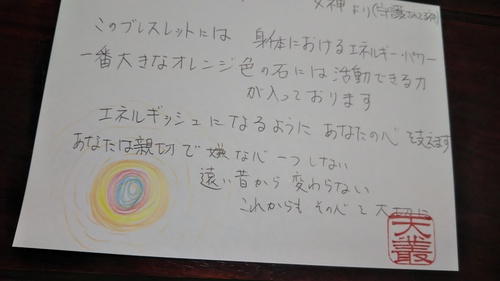 女神 より(守護
このブレスレットには 身体におけるエネルギー・パワー
一番大きなオレンジ色の石には活動できる力
が入っております
エネルギッシュになるように あなたの心を支えます
あなたは親切で 嫌な心一つしない
遠い昔から変わらない
これからも その心を大切に
天叢